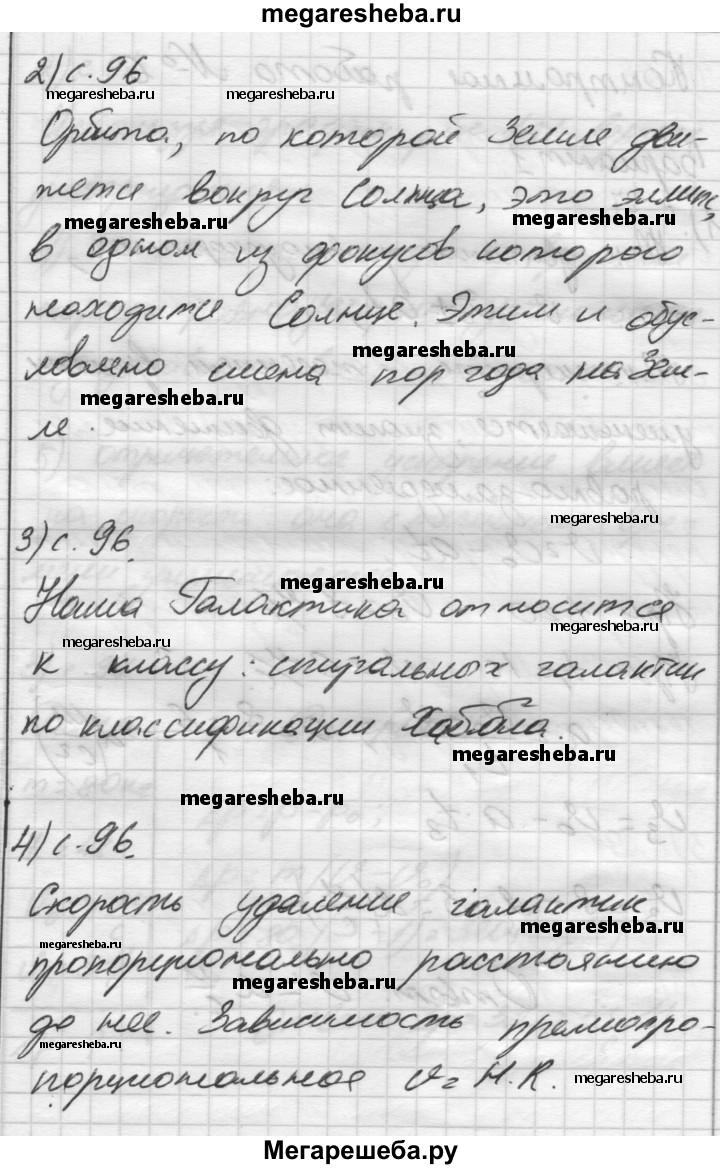 megaresheba.ru
2) с. 96
megaresheba.ru megaresheba.ru
Орбита, по которой Земля дви-
жется вокруг Солнца, это элипс,
megaresheba.ru megaresheba.ru
в одном из фокусов которого
находится Солнце. Этим и обус-
megaresheba.ru
ловлено смена пор года на Зем-
megaresheba.ru
ле.
megaresheba.ru
3) с. 96.
megaresheba.ru
Наша Галактика относится
megaresheba.ru megaresheba.ru
к классу: спиральных галактик
по классификации Хаббла.
megaresheba.ru
megaresheba.ru
4) с. 96.
Скорость удаление галактик
megaresheba.ru megaresheba.ru
пропорционально расстоянию
megaresheba.ru
до нее. Зависимость прямопро-
megaresheba.ru
порциональная v = H.R. megaresheba.ru
Мегарешеба.ру